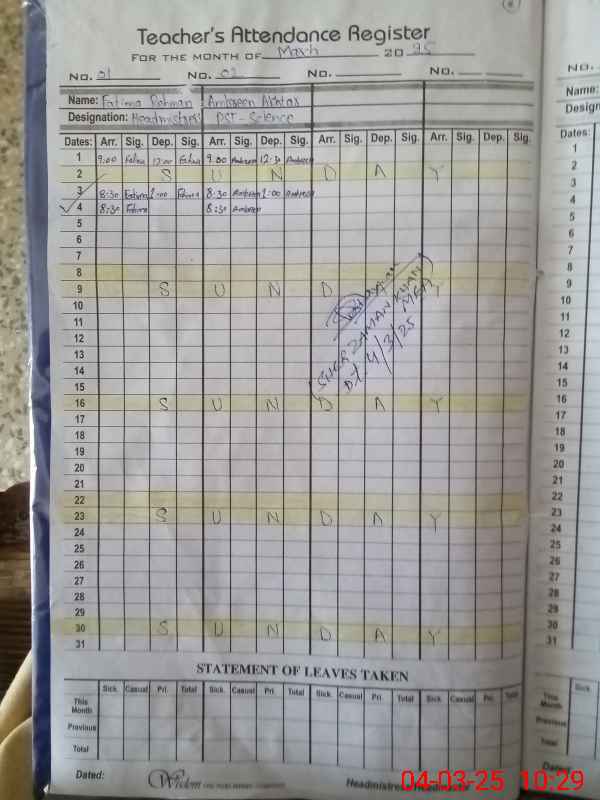 Teacher's Attendance Register
FOR THE MONTH OF March 2025
No. 01 No. 02 No. No.
Name: Fatima Rehman Ambreen Akhtar
Designation: Headmistress PST-Science
Dates: Arr. Sig. Dep. Sig. Arr. Sig. Dep. Sig. Arr. Sig. Dep. Sig. Arr. Sig. Dep. Sig.
1 9:00 Fatima 12:00 Fatima 9:00 Ambreen 12:30 Ambreen
2 S U N D A Y
3 8:30 Fatima 1:00 Fatima 8:30 Ambreen 1:00 Ambreen
4 8:30 Fatima 8:30 Ambreen
5
6
7
8
9 S U N D A Y
10
11
12
13
14
15
16 S U N D A Y
17
18
19
20
21
22
23 S U N D A Y
24
25
26
27
28
29
30 S U N D A Y
31
(SHER ZAMAN KHAN)
MEA
Dt. 4/3/25
STATEMENT OF LEAVES TAKEN
Sick. Casual Pri. Total Sick. Casual Pri. Total Sick. Casual Pri. Total Sick. Casual Pri. Total
This Month
Previous
Total
Dated: Wisdom Headmistress/Headmaster
No.
Name:
Design
Dates: Arr.
1
2
3
4
5
6
7
8
9
10
11
12
13
14
15
16
17
18
19
20
21
22
23
24
25
26
27
28
29
30
31
Sick.
This Month
Previous
Total
Dated:
04-03-25 10:29